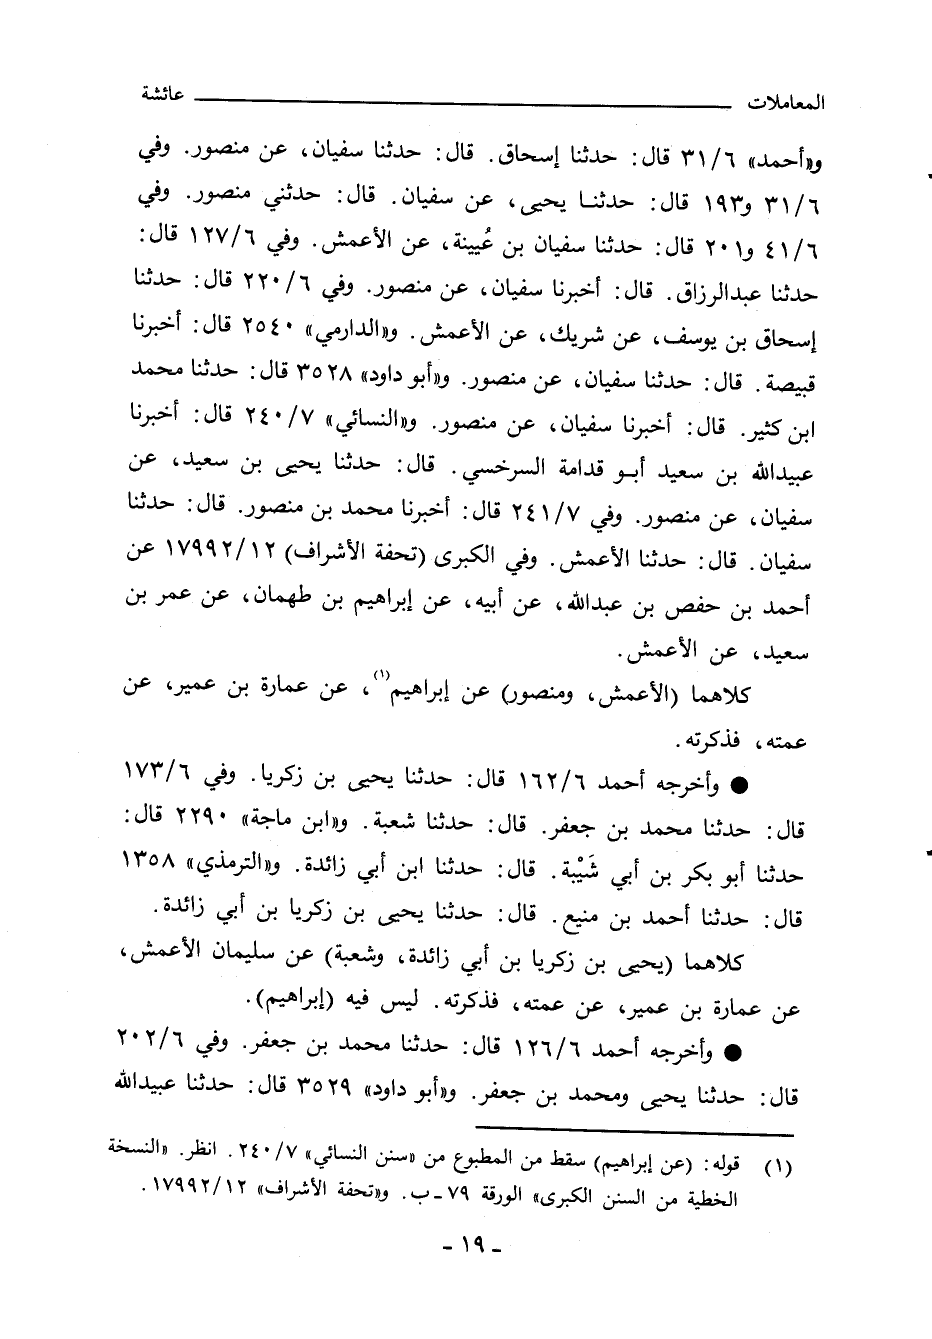 المعاملات ــــــــــــــــــــــــــــــــ عائشة
و«أحمد» ٣١/٦ قال: حدثنا إسحاق. قال: حدثنا سفيان، عن منصور. وفي
٣١/٦ و١٩٣ قال: حدثنا يحيى، عن سفيان. قال: حدثني منصور. وفي
٤١/٦ و٢٠١ قال: حدثنا سفيان بن عُيينة، عن الأعمش. وفي ١٢٧/٦ قال:
حدثنا عبدالرزاق. قال: أخبرنا سفيان، عن منصور. وفي ٢٢٠/٦ قال: حدثنا
إسحاق بن يوسف، عن شريك، عن الأعمش. و«الدارمي» ٢٥٤٠ قال: أخبرنا
قبيصة. قال: حدثنا سفيان، عن منصور. و«أبو داود» ٣٥٢٨ قال: حدثنا محمد
ابن كثير. قال: أخبرنا سفيان، عن منصور. و«النسائي» ٢٤٠/٧ قال: أخبرنا
عبيدالله بن سعيد أبو قدامة السرخسي. قال: حدثنا يحيى بن سعيد، عن
سفيان، عن منصور. وفي ٢٤١/٧ قال: أخبرنا محمد بن منصور. قال: حدثنا
سفيان. قال: حدثنا الأعمش. وفي الكبرى (تحفة الأشراف) ١٧٩٩٢/١٢ عن
أحمد بن حفص بن عبدالله، عن أبيه، عن إبراهيم بن طهمان، عن عمر بن
سعيد، عن الأعمش.
كلاهما (الأعمش، ومنصور) عن إبراهيم(١)، عن عمارة بن عمير، عن
عمته، فذكرته.
● وأخرجه أحمد ١٦٢/٦ قال: حدثنا يحيى بن زكريا. وفي ١٧٣/٦
قال: حدثنا محمد بن جعفر. قال: حدثنا شعبة. و«ابن ماجة» ٢٢٩٠ قال:
حدثنا أبو بكر بن أبي شَيْبة. قال: حدثنا ابن أبي زائدة. و«الترمذي» ١٣٥٨
قال: حدثنا أحمد بن منيع. قال: حدثنا يحيى بن زكريا بن أبي زائدة.
كلاهما (يحيى بن زكريا بن أبي زائدة، وشعبة) عن سليمان الأعمش،
عن عمارة بن عمير، عن عمته، فذكرته. ليس فيه (إبراهيم).
● وأخرجه أحمد ١٢٦/٦ قال: حدثنا محمد بن جعفر. وفي ٢٠٢/٦
قال: حدثنا يحيى ومحمد بن جعفر. و«أبو داود» ٣٥٢٩ قال: حدثنا عبيدالله
(١) قوله: (عن إبراهيم) سقط من المطبوع من «سنن النسائي» ٢٤٠/٧. انظر. «النسخة
الخطية من السنن الكبرى» الورقة ٧٩ - ب. و«تحفة الأشراف» ١٧٩٩٢/١٢.
- ١٩ -